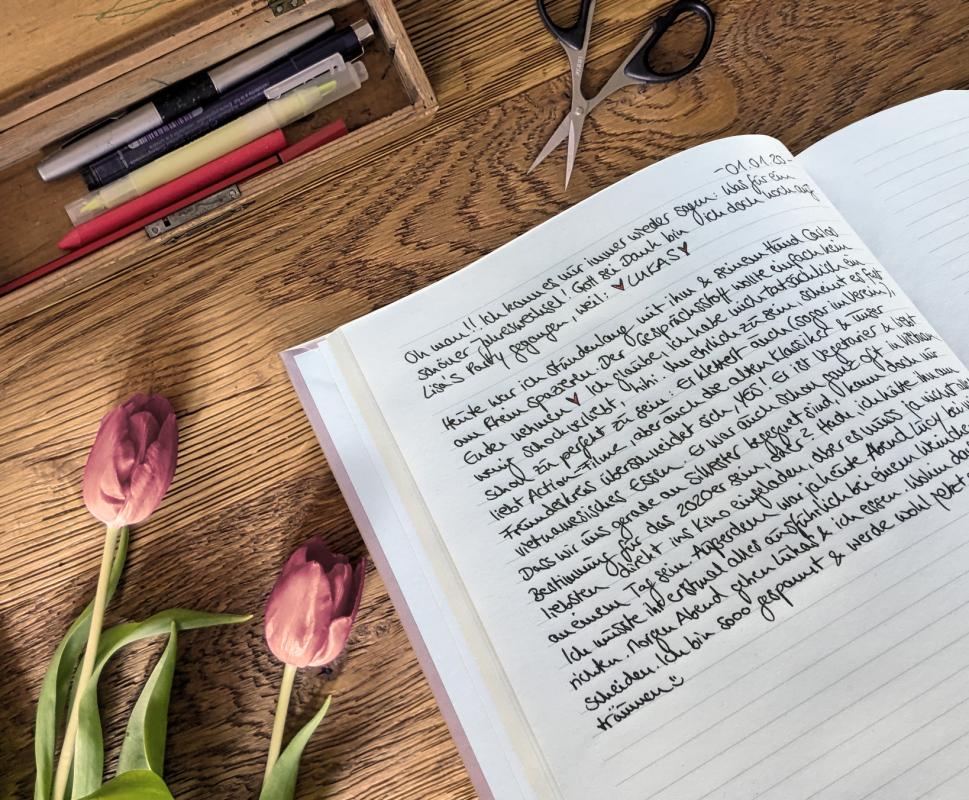 -01.01.20-
Oh man!! Ich kann es nur immer wieder sagen: Was für ein
schöner Jahreswechsel! Gott sei Dank bin ich doch noch auf
Lisas Party gegangen, weil: ♥LUKAS♥
Heute war ich stundenlang mit ihm & seinem Hund Casimir
am Rhein spazieren. Der Gesprächsstoff wollte einfach kein
Ende nehmen ♥ Ich glaube, ich habe mich tatsächlich ein
wenig schockverliebt, hihi. Um ehrlich zu sein, scheint es fast
schon zu perfekt zu sein: Er klettert auch (sogar im Verein),
liebt Action-Filme, aber auch die alten Klassiker & unser
Freundeskreis überschneidet sich, YES! Er ist Vegetarier & liebt
vietnamesisches Essen. Er war auch schon ganz oft in
Dass wir uns gerade an Silvester begegnet sind, kann doch nur
Bestimmung für das 2020er sein, oder? Heute, ich hätte ihn am
liebsten direkt ins Kino eingeladen, aber es muss ja nicht alles
an einem Tag sein. Außerdem war ja heute Abend Lucy bei
Ich musste ihr erstmal alles ausführlich bei einem
richten. Morgen Abend gehen Lukas & ich essen. Wohin darf
scheiden. Ich bin sooo gespannt & werde wohl jetzt
träumen